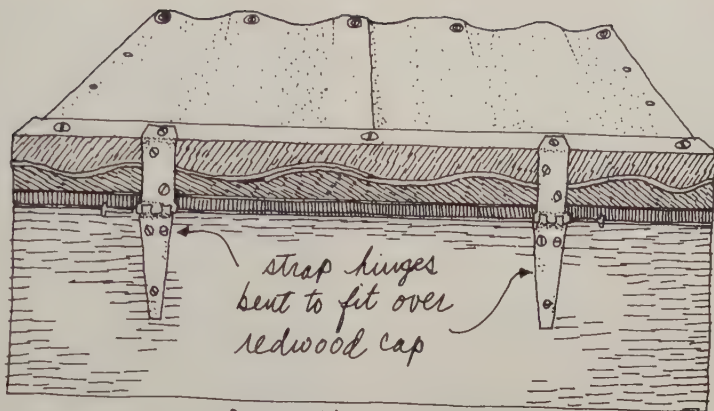 strap hinges
bent to fit over
redwood cap